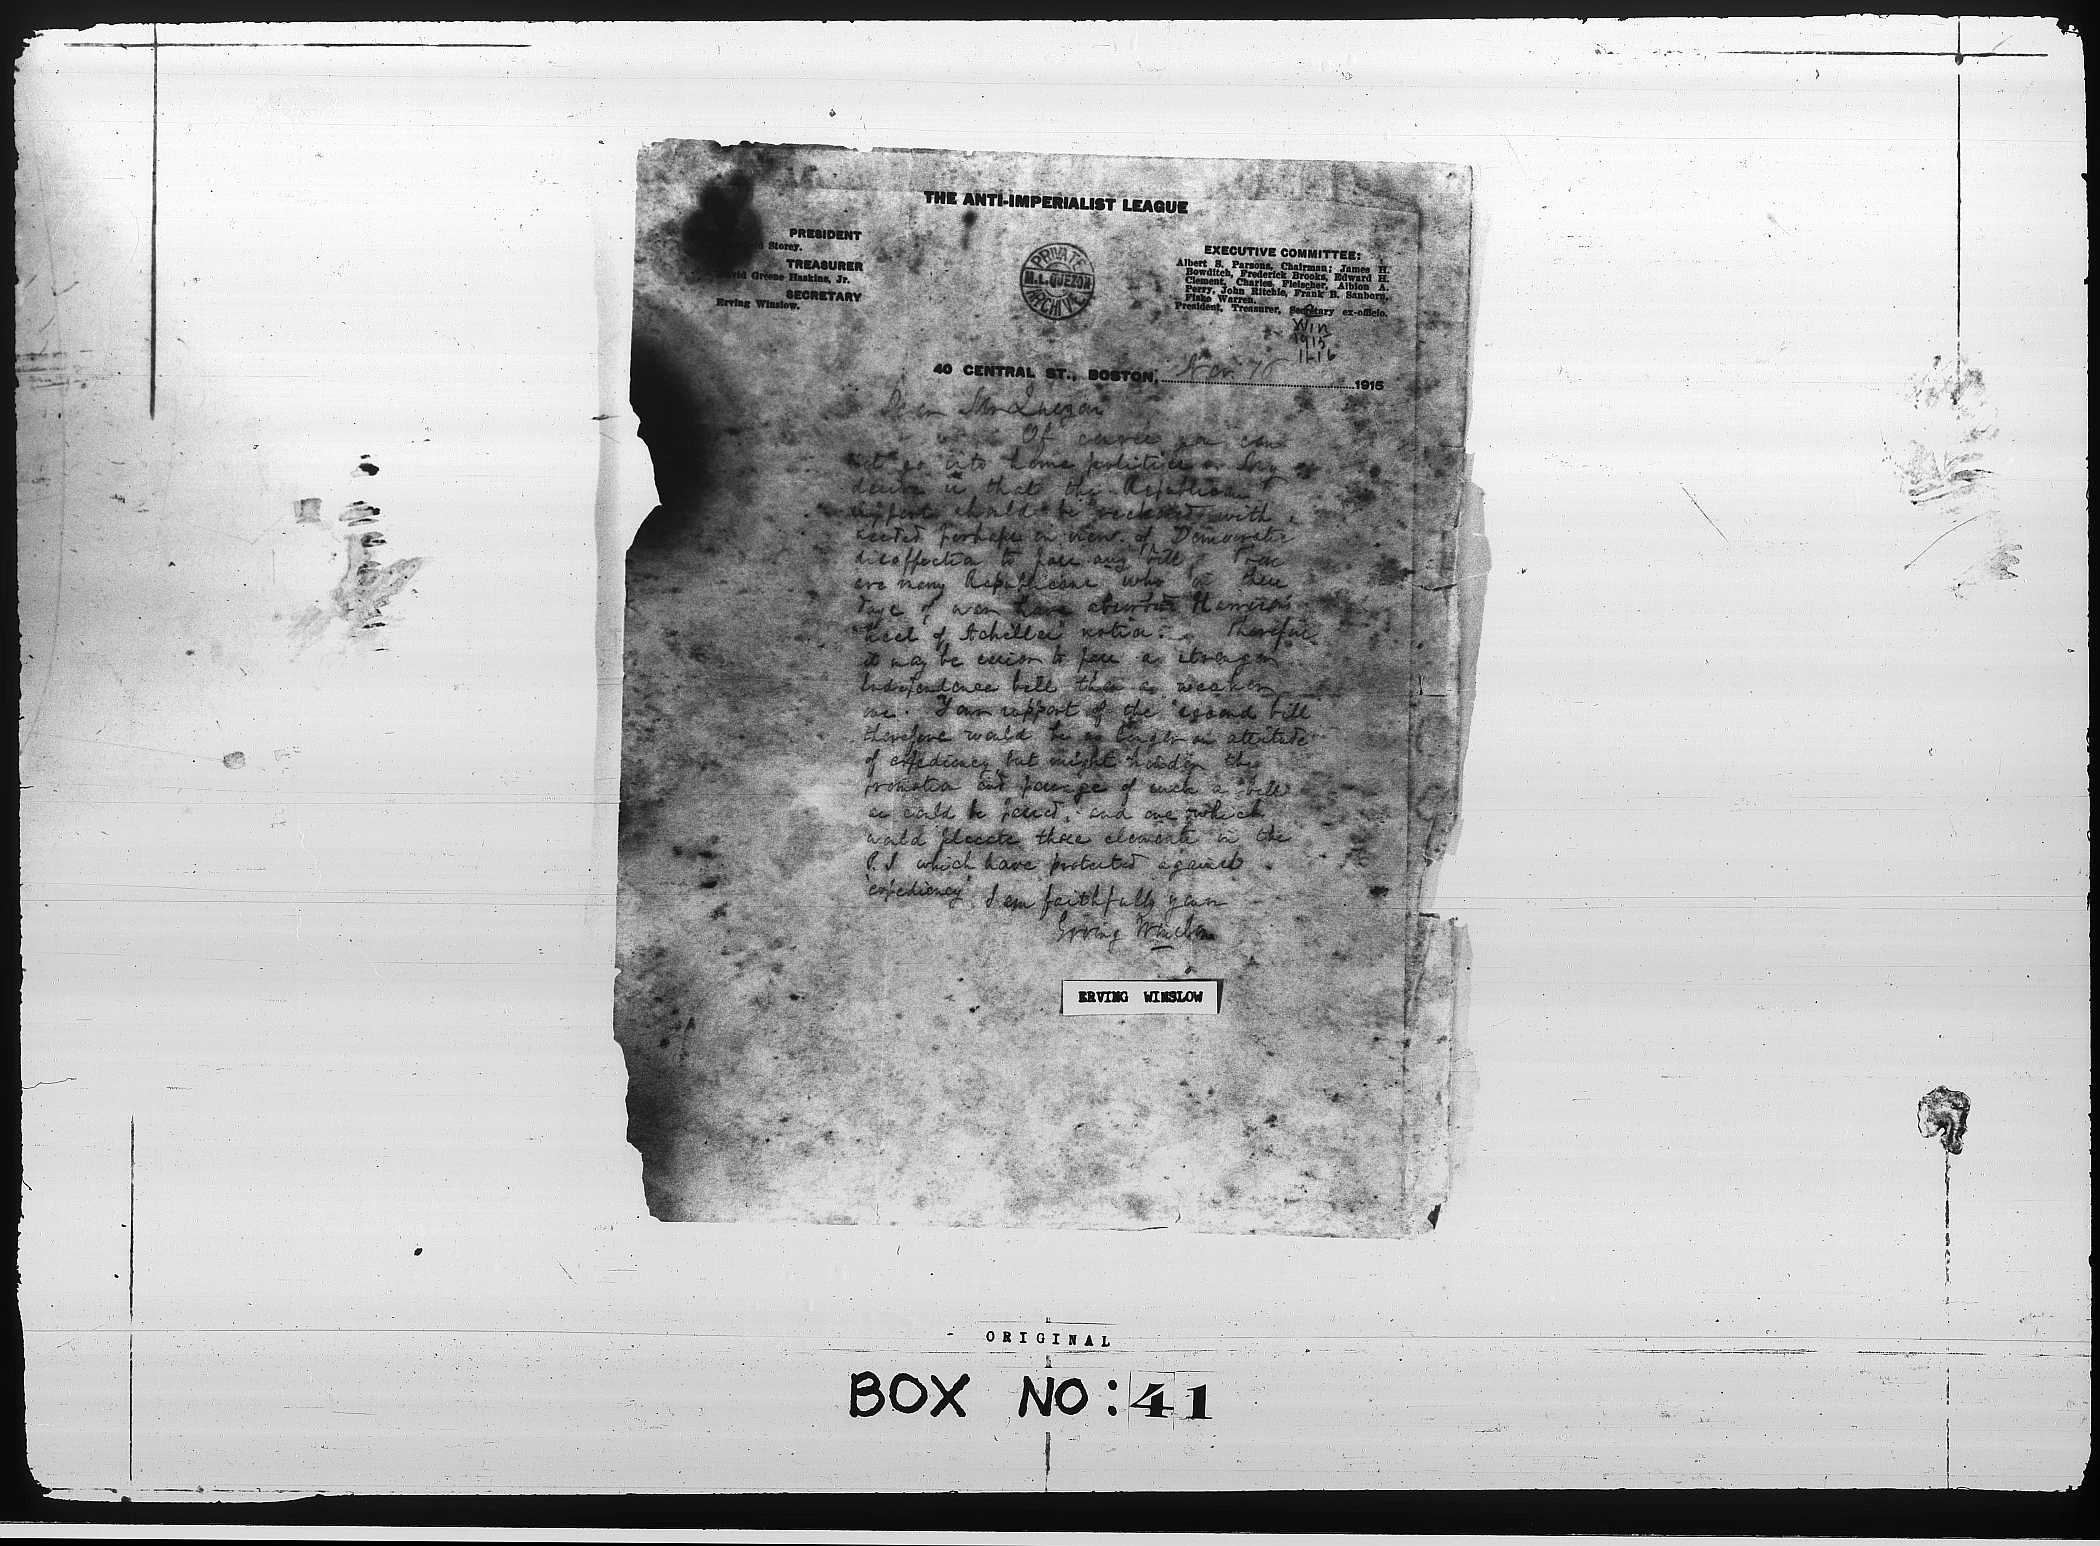 THE ANTI-IMPERIALIST LEAGUE
PRESIDENT
Storey.
TREASURER
David Greene Haskins, Jr.
SECRETARY
Erving Winslow.
PRIVATE
M.L.QUEZON
ARCHIVE
EXECUTIVE COMMITTEE:
Albert S. Parsons, Chairman; James H.
Bowditch, Frederick Brooks, Edward H.
Clement, Charles Fleischer, Albion A.
Perry, John Ritchie, Frank B. Sanborn,
Fiske Warren.
President, Treasurer, Secretary ex-officio.
Win
1915
11-16
40 CENTRAL ST., BOSTON, Nov. 16 1915
Dear Mr Quezon
Of course you can
not go into home politics
desire is that the Republican
support should be reckoned with,
needed perhaps in view of Democratic
disaffection to pass any bill. There
are many Republicans who in these
days of war have Harrison's
"heel of Achilles" notion. Therefore
it may be easier to pass a stronger
Independence bill than a weaker
one. Your support of the second bill
therefore would be no longer an attitude
of expediency, but might harden the
promotion and passage of such a bill
as could be passed, and one which
would placate those elements in the
P.I. which have protested against
"expediency" I am faithfully yours
Erving Winslow
ERVING WINSLOW
ORIGINAL
BOX NO: 41